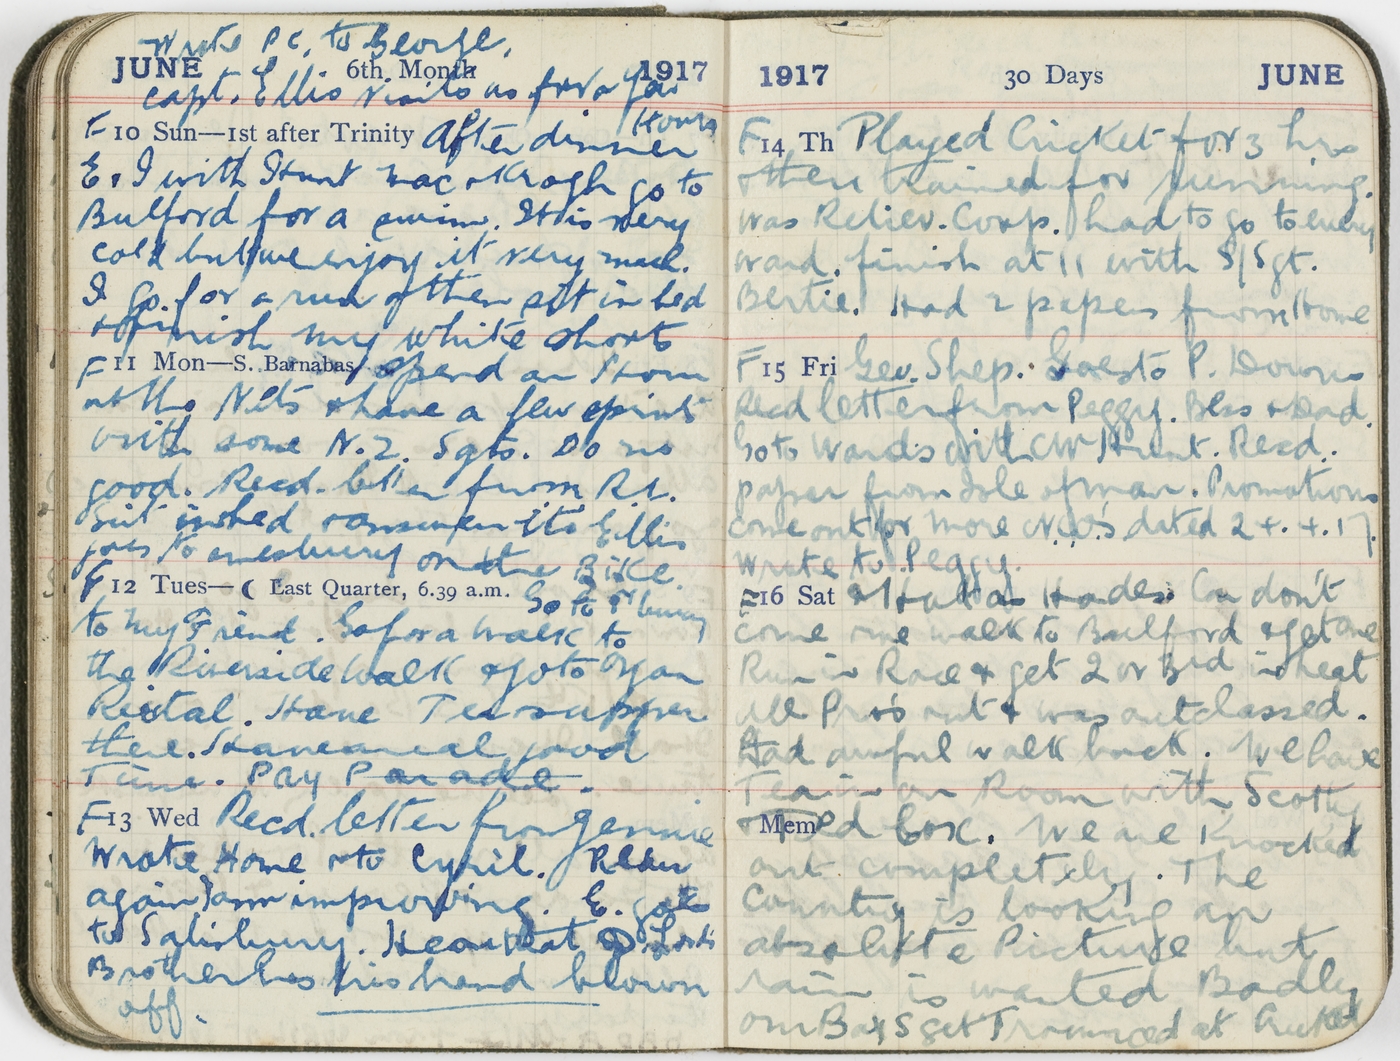 Wrote P.C. to George.
JUNE 6th Month 1917
Capt. Ellis visits us for a few
Hours
F 10 Sun—1st after Trinity After dinner
E. & I with Hunt Mac & Kragh go to
Bulford for a swim. It is very
cold but we enjoy it very much.
I go for a run & then sit in bed
& finish my white shorts
F 11 Mon—S. Barnabas Spend an Hour
at the Nets & have a few sprints
with some N.Z. Sgts. Do no
good. Recd. letter from
Sit in bed Ellis
goes to Amesbury on the Bike.
F 12 Tues—☾ East Quarter, 6.39 a.m.
Go to
to my Friend. Go for a walk to
the Riverside walk & go to Organ
Recital. Have Tea & supper
there. Have a real good
Time. Pay Parade.
F 13 Wed Recd. letter from Jennie
Wrote Home & to Cyril.
again I am improving. E. goes
to Salisbury. Hear that
Brother has his hand blown
off.
1917 30 Days JUNE
F 14 Th Played Cricket for 3 hrs
& then trained for running.
was Reliev. Corp. had to go to every
ward. finish at 11 with S/Sgt.
Bertie. Had 2 papers from Home
F 15 Fri Geo. Shep. Goes to P. Downs
Recd letter from Peggy. Bless
Go to Wards with CW Hunt. Recd.
paper from Isle of man. Promotions
come out for more N.C.O's dated 24.4.17.
Wrote to Peggy.
F 16 Sat Hot as Hades. Car don't
come we walk to Bulford & get one
Run in Race & get 2 or 3rd in heat
All Pro's out & was outclassed.
Had awful walk back. We have
Tea in our Room with Scotty
Mem & Ted Cox. We are Knocked
out completely. The
Country is looking an
absolute Picture but
rain is wanted Badly
our Boys get Trounced at Cricket